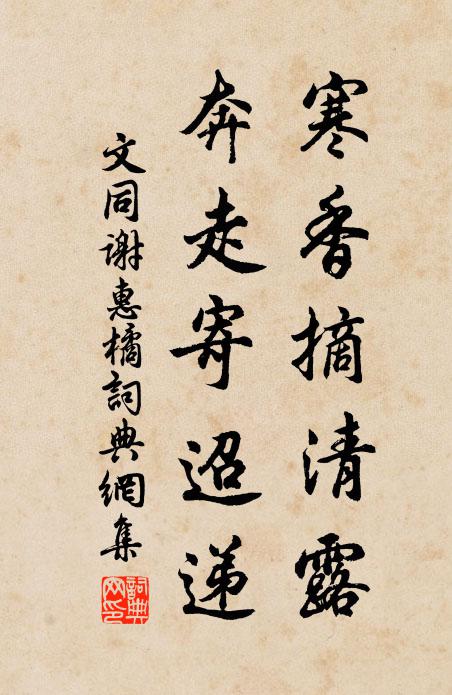 寒香摘清露
奔走寄迢递
文同谢惠橘詞典網集
詞典
网印